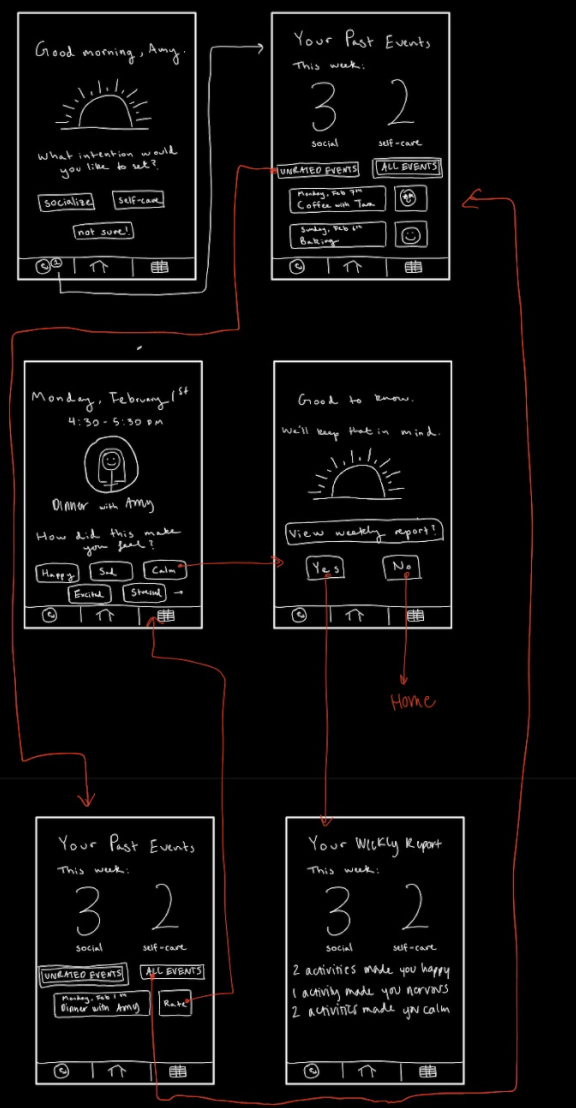 Good morning, Amy.
What intention would
you like to set?
socialize
self-care
not sure!
2
Your Past Events
This week:
3 2
social self-care
UNRATED EVENTS ALL EVENTS
Monday, Feb 7th
Coffee with Tara
Sunday, Feb 6th
Baking
Monday, February 1st
4:30 - 5:30 pm
Dinner with Amy
How did this make
you feel?
Happy Sad Calm
Excited Stressed
Good to know.
We'll keep that in mind.
View weekly report?
Yes No
Home
Your Past Events
This week:
3 2
social self-care
UNRATED EVENTS ALL EVENTS
Monday, Feb 1th
Dinner with Amy
Rate
Your Weekly Report
This week:
3 2
social self-care
2 activities made you happy
1 activity made you nervous
2 activities made you calm